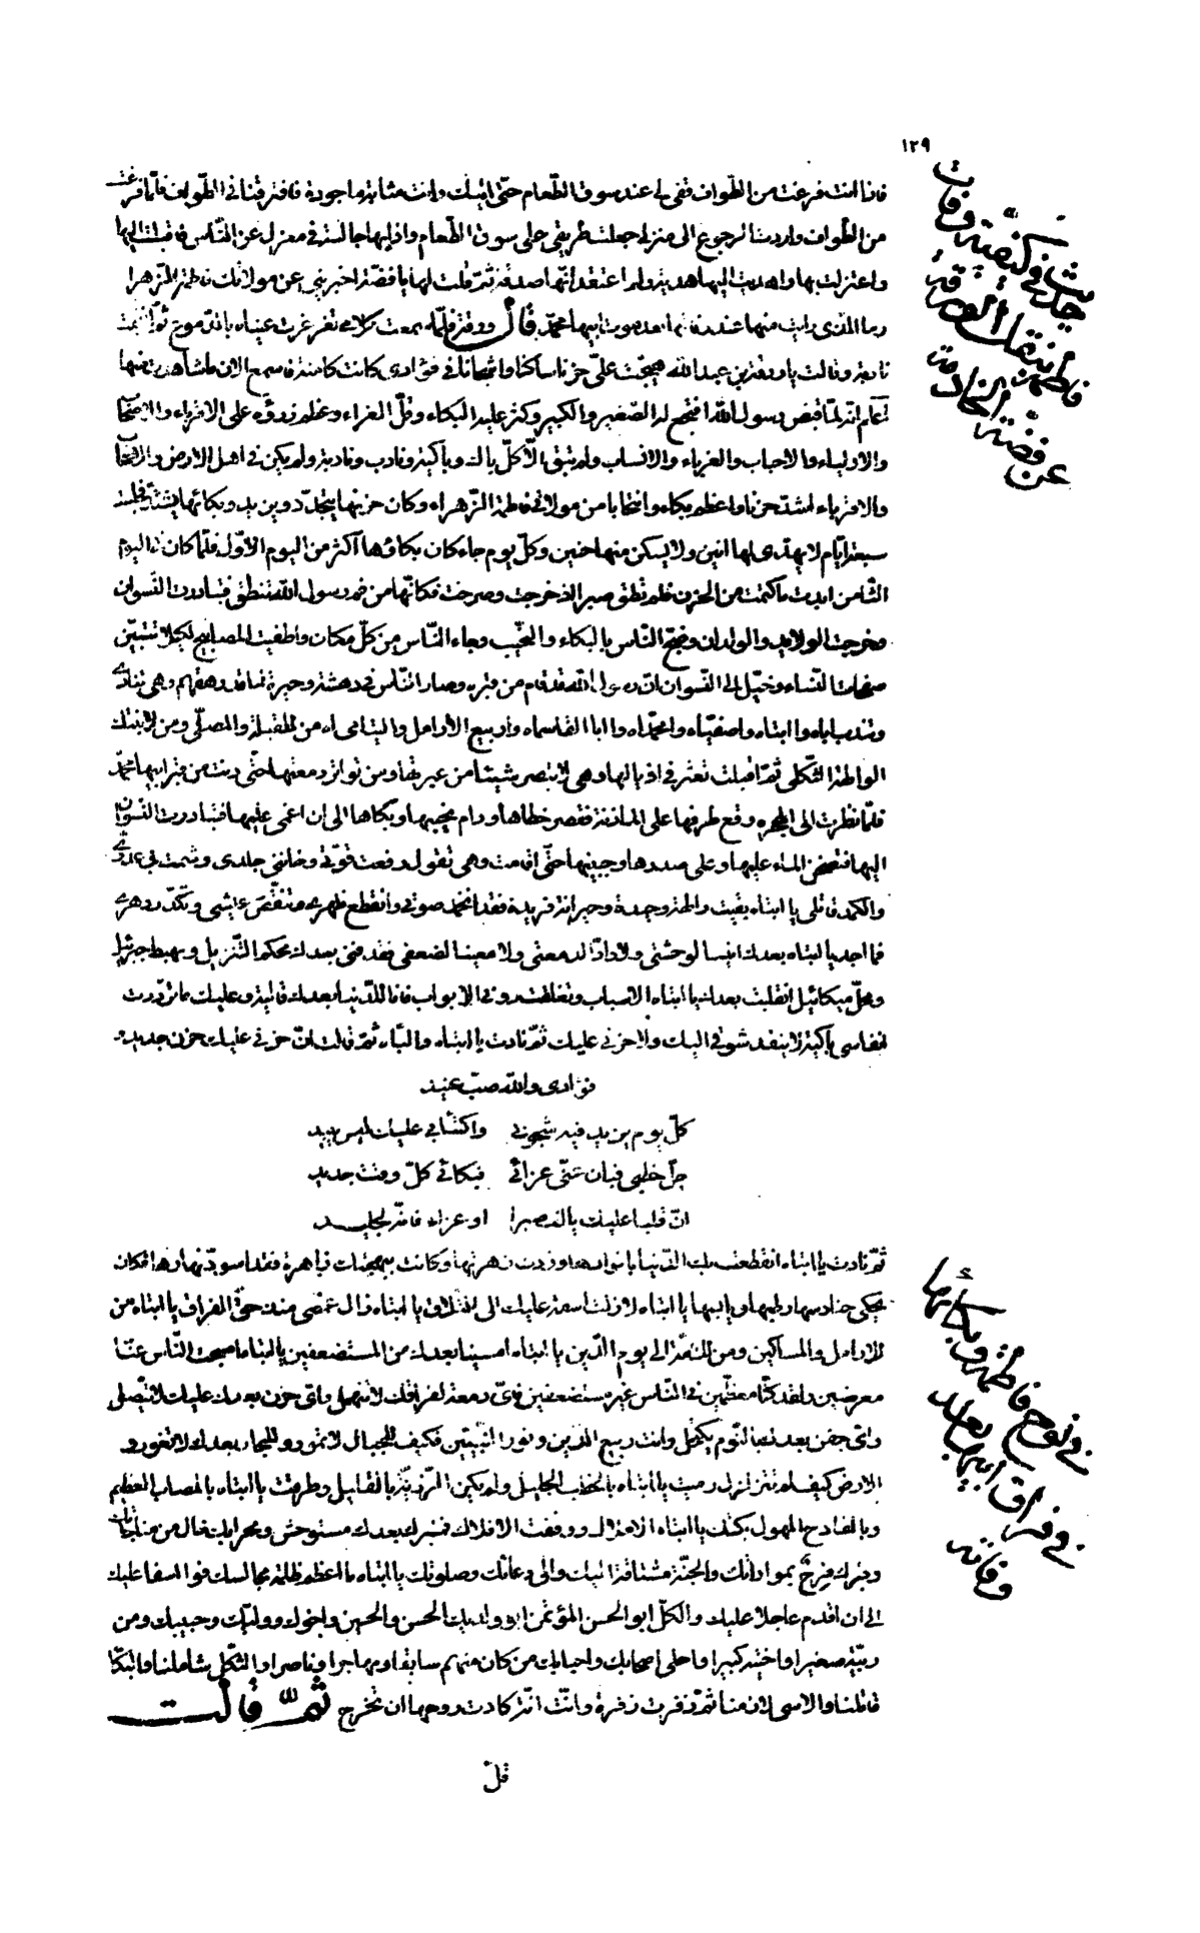 ١٢٩
فاذا انت فرغت من الطواف قفى لى عند سوق الطّعام حتّى اتيك وانت مثابة ماجورة فافترقنا فى الطّواف فلمّا فرغت
من الطّواف واردت الرجوع الى منزلى جعلت طريقى على سوق الطّعام واذا بها جالسة فى معزل عن النّاس فاقبلت اليها
واعتزلت بها واهديت اليها هدية ولم اعتقد انّها صدقة ثمّ قلت لها يا فضّة اخبرينى عن مولاتك فاطمة الزّهرا
وما الذى رايت منها عند وفاتها بعد موت ابيها محمّد قال ورقة فلمّا سمعت كلامى تغرغرت عيناها بالدّموع ثمّ انتحبت
نادبة وقالت يا ورقة بن عبد الله هيّجت علىّ حزنا ساكنا واشجانا فى فؤادى كانت كامنة فاسمع الان ما شاهدت منها
اعلم انّه لمّا قبض رسول الله افتجع له الصّغير والكبير وكثر عليه البكاء وقلّ العزاء وعظم رزؤه على الاقرباء والاصحاب
والاولياء والاحباب والغرباء والانساب ولم تبق الّا كلّ باك وباكية ونادب ونادبة ولم يكن فى اهل الارض والاصحاب
والاقرباء اشدّ حزنا واعظم بكاء وانتحابا من مولاتى فاطمة الزّهراء وكان حزنها يتجدّد ويزيد وبكائها يشتدّ فجلست
سبعة ايّام لا يهدى لها انين ولا يسكن منها حنين وكلّ يوم جاء كان بكاؤها اكثر من اليوم الاوّل فلمّا كان فى اليوم
الثّامن ابدت ما كتمت من الحزن فلم تطق صبرا اذ خرجت وصرخت فكانّها من فم رسول الله تنطق فتبادرت النّسوان
وخرجت الولايد والولدان وضجّ النّاس بالبكاء والنّحيب وجاء النّاس من كلّ مكان واطفيت المصابيح لكيلا تتبيّن
صفحات النّساء وخيّل الى النّسوان انّ رسول الله قد قام من قبره وصار النّاس فى دهشة وحيرة لما قد رهقهم وهى تنادى
وتندب اباه وا ابتاه واصفيّاه وامحمّداه وا ابا القاسماه واربيع الارامل واليتامى من للقبلة والمصلّى ومن لابنتك
الوالهة الثّكلى ثمّ اقبلت تعثر فى اذيالها وهى لا تبصر شيئا من عبرتها ومن تواتر دمعتها حتّى دنت من قبر ابيها محمّد
فلمّا نظرت الى الحجرة وقع طرفها على الماذنة فقصر خطاها ودام نحيبها وبكاها الى ان اغمى عليها فتبادرت النّسوان
اليها فنضحن الماء عليها وعلى صدرها وجبينها حتّى افاقت وهى تقول رفعت قوّتى وخاننى جلدى وشمت بى عدوّى
والكمد قاتلى يا ابتاه بقيت والهة وحيدة وحيرانة فريدة فقد انخمد صوتى وانقطع ظهرى وتنغّص عيشى وتكدّر دهرى
فما اجد يا ابتاه بعدك انيسا لوحشتى ولا رادّا لدمعتى ولا معينا لضعفى فقد فنى بعدك محكم التّنزيل ومهبط جبرئيل
ومحلّ ميكائيل انقلبت بعدك يا ابتاه الاسباب وتغلّقت دونى الابواب فانا للدّنيا بعدك قالية وعليك ما تردّدت
انفاسى باكية لا ينفد شوقى اليك ولا حزنى عليك ثمّ نادت يا ابتاه والبّاه ثمّ قالت انّ حزنى عليك حزن جديد
فؤادى والله صبّ عنيد
كلّ يوم يزيد فيه شجونى واكتئابى عليك ليس يبيد
جلّ خطبى فبان عنّى عزائى فبكائى كلّ وقت جديد
انّ قلبا عليك يالف صبرا او عزاء فانّه لجليد
ثمّ نادت يا ابتاه انقطعت بك الدّنيا بانوارها وزوت زهرتها وكانت ببهجتك زاهرة فقد اسودّ نهارها فكان
يحكى حنادسها رطبها ويابسها يا ابتاه لا زلت اسفة عليك الى التّلاق يا ابتاه زال غمضى منذ حقّ الفراق يا ابتاه من
للارامل والمساكين ومن للامّة الى يوم الدّين يا ابتاه امسينا بعدك من المستضعفين يا ابتاه اصبحت النّاس عنّا
معرضين ولقد كنّا بك معظّمين فى النّاس غير مستضعفين فاىّ دمعة لفراقك لا تنهمل واىّ حزن بعدك عليك لا يتّصل
واىّ جفن بعدك بالنّوم يكتحل وانت ربيع الدّين ونور النّبيّين فكيف للجبال لا تمور وللبحار بعدك لا تغور و
الارض كيف لم تتزلزل رميت يا ابتاه بالخطب الجليل ولم يكن الرّزيّة بالقليل وطرقت يا ابتاه بالمصاب العظيم
وبالفادح المهول بكتك يا ابتاه الاملاك ووقفت الافلاك فمنبرك بعدك مستوحش ومحرابك خال من مناجاتك
وقبرك فرح بمواراتك والجنّة مشتاقة اليك والى دعائك وصلوتك يا ابتاه ما اعظم ظلمة مجالسك فوا اسفا عليك
الى ان اقدم عاجلا عليك واثكل ابو الحسن المؤتمن ابو ولديك الحسن والحسين واخوك ووليّك وحبيبك ومن
ربّيته صغيرا واخيته كبيرا واحلى اصحابك واحبابك من كان منهم سابقا ومهاجرا وناصرا والثّكل شاملنا والبكا
قاتلنا والاسى لازمنا ثمّ زفرت زفرة وانّت انّة كادت روحها ان تخرج ثمّ قالت
قلّ
حديث فى كيفيّة وفات
فاطمة نقل ورقة
عن فضّة الخادمة
فى نوح فاطمة وبكائها
فى فراق ابيها بعد
وفاته